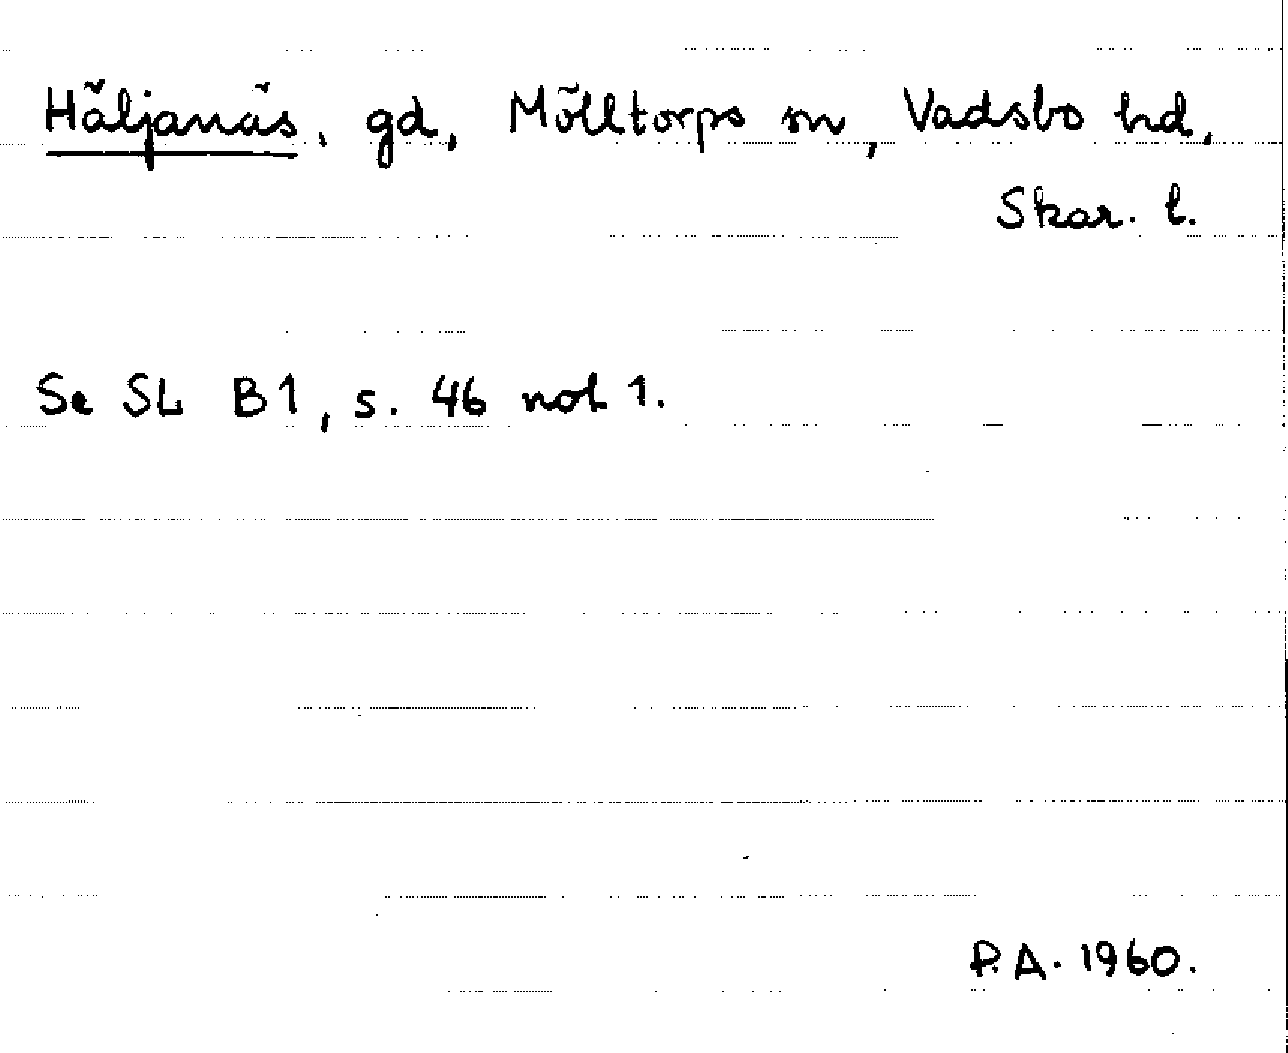 Häljanäs, gd, Mölltorps sn, Vadsbo hd,
Skar. l.
Se SL B1, s. 46 not 1.
P.A. 1960.